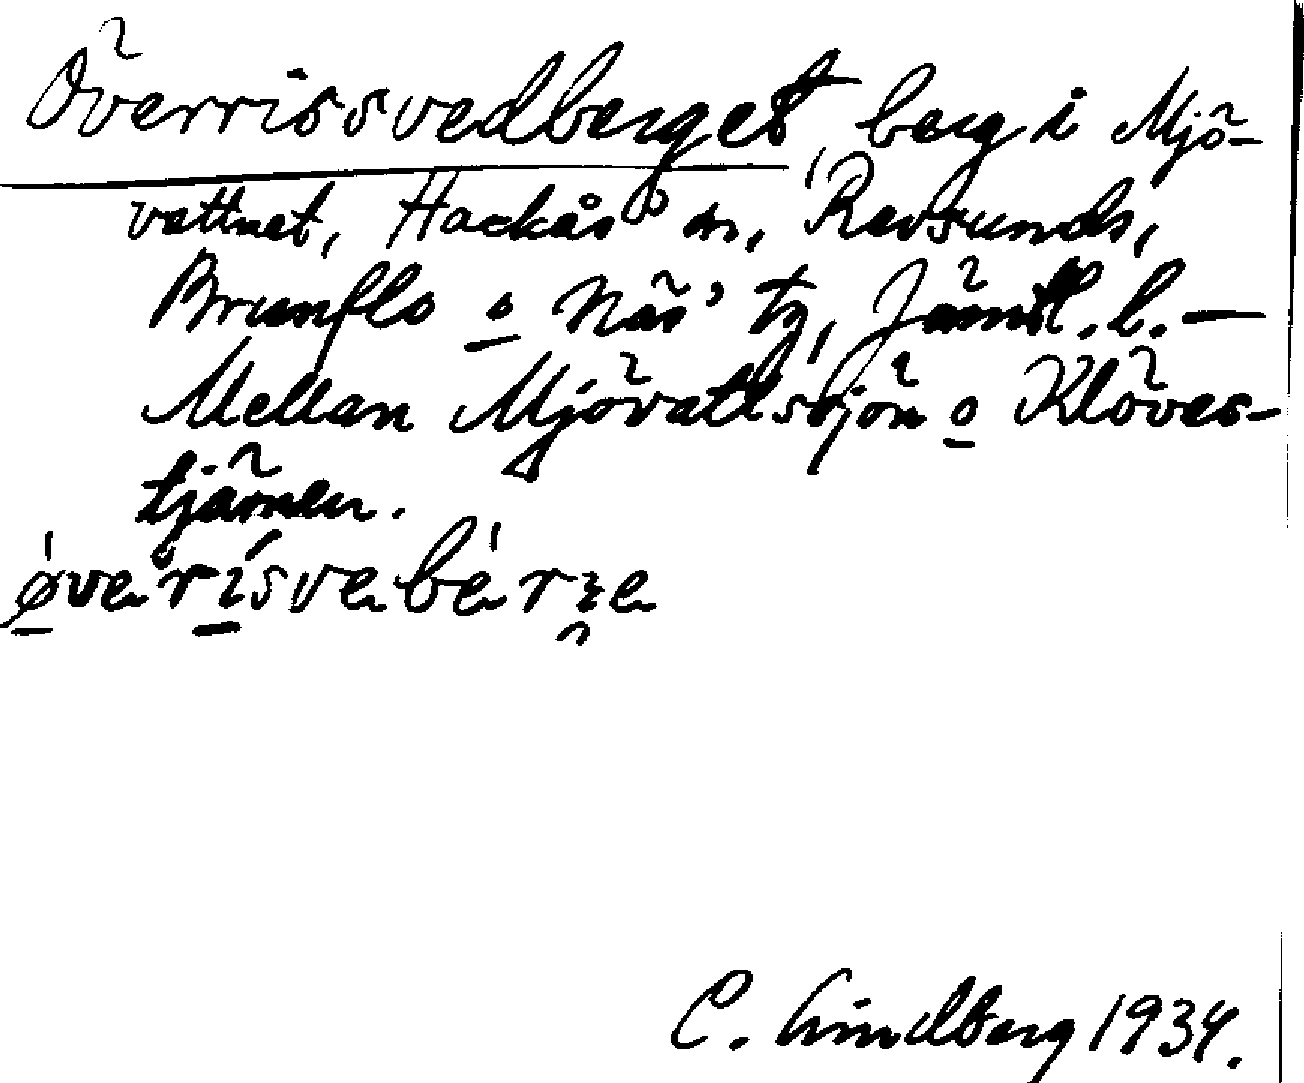 Överrissvedberget, berg i Mjö-
vattnet, Hackås sn, Revsunds,
Brunflo o Näs' tg, Jämtl. l. –
Mellan Mjövattssjön o Klöves-
tjärnen.
C. Lindberg 1934.